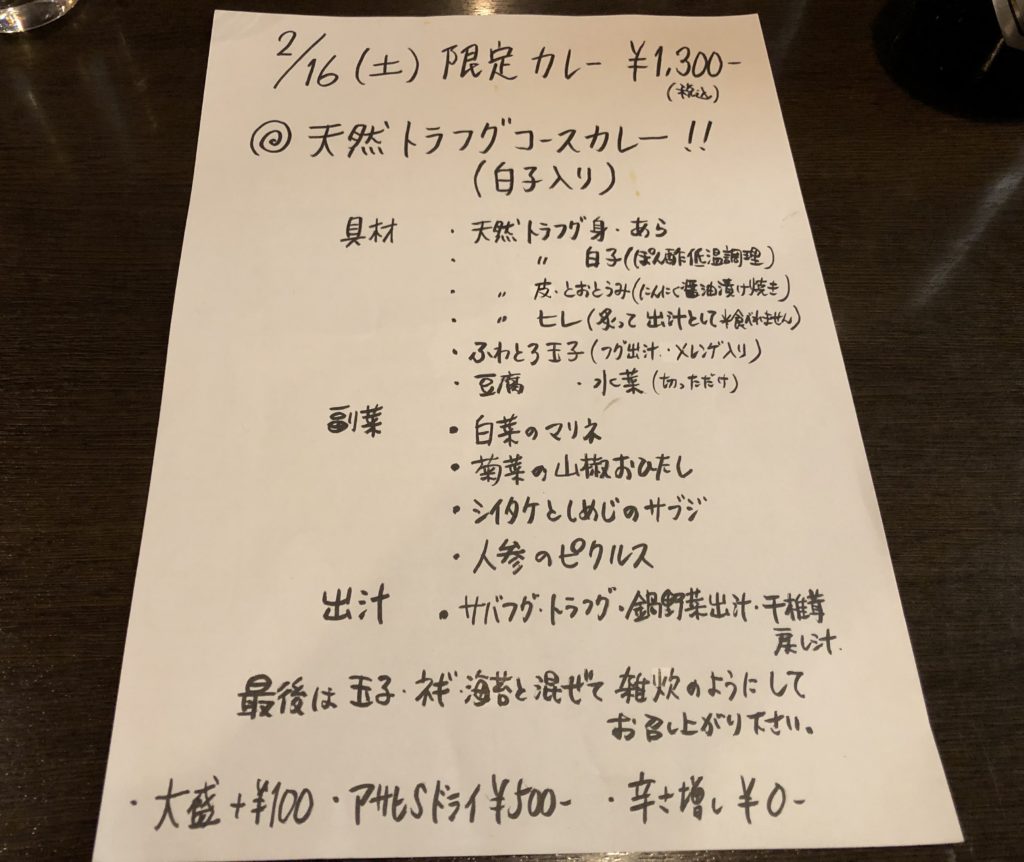 2/16(土) 限定カレー ¥1,300-
(税込)
◎ 天然トラフグコースカレー!!
(白子入り)
具材 ・天然トラフグ身・あら
・ 〃 白子(ぽん酢低温調理)
・ 〃 皮・とおとうみ(にんにく醤油漬け焼き)
・ 〃 ヒレ(炙って出汁として ※食べれません)
・ふわとろ玉子(フグ出汁・メレンゲ入り)
・豆腐 ・水菜(切っただけ)
副菜 ・白菜のマリネ
・菊菜の山椒おひたし
・シイタケとしめじのサブジ
・人参のピクルス
出汁 ・サバフグ・トラフグ・鍋野菜出汁・干椎茸
戻し汁
最後は玉子・ネギ・海苔と混ぜて雑炊のようにして
お召し上がり下さい。
・大盛+¥100 ・アサヒSドライ¥500- ・辛さ増し¥0-